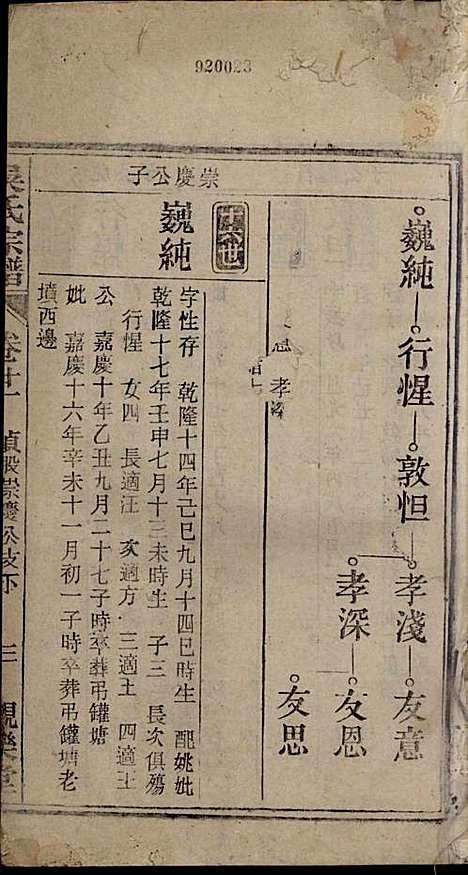 920023
巍純
行惺
敦怛
孝淺
友意
孝深
友恩
友思
孝深
崇慶公子
巍純
字性存 乾隆十四年己巳九月十四巳時生 配姚妣
乾隆十七年壬申七月十三未時生 子三 長次俱殤
行惺 女四 長適汪 次適方 三適王 四適王
公 嘉慶十年乙丑九月二十七子時卒葬弔罐塘
妣 嘉慶十六年辛未十一月初一子時卒葬弔罐塘老
墳西邊
氏宗譜
卷廿一
崇慶公支下
三
觀樂堂